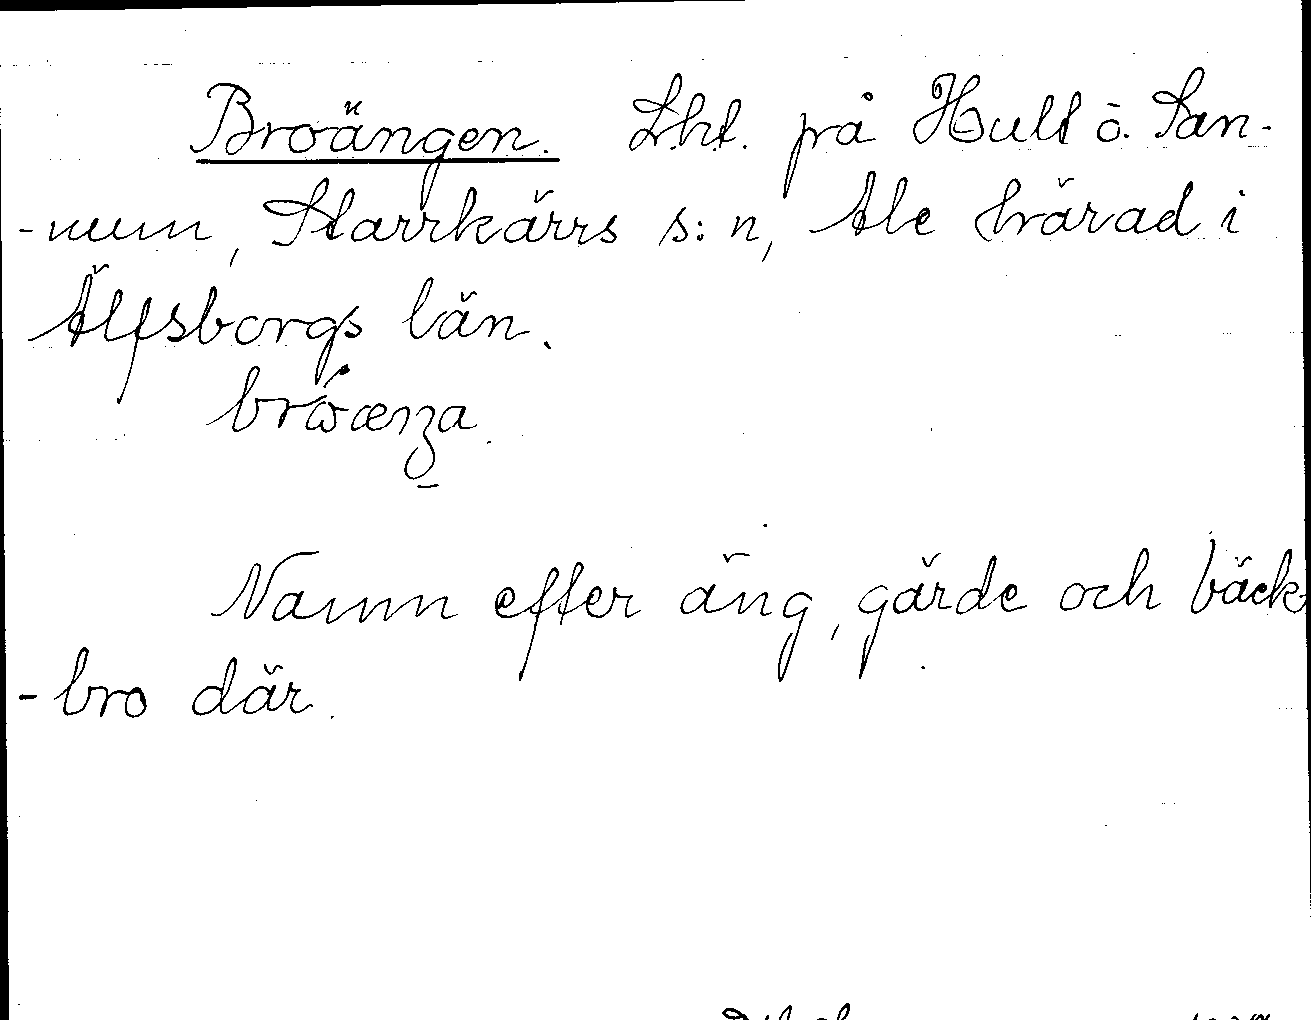 Broängen. Lht. på Hult ö. San-
-num, Starrkärrs s:n, Ale härad i
Älfsborgs län.
Namn efter äng, gärde och bäck-
-bro där.